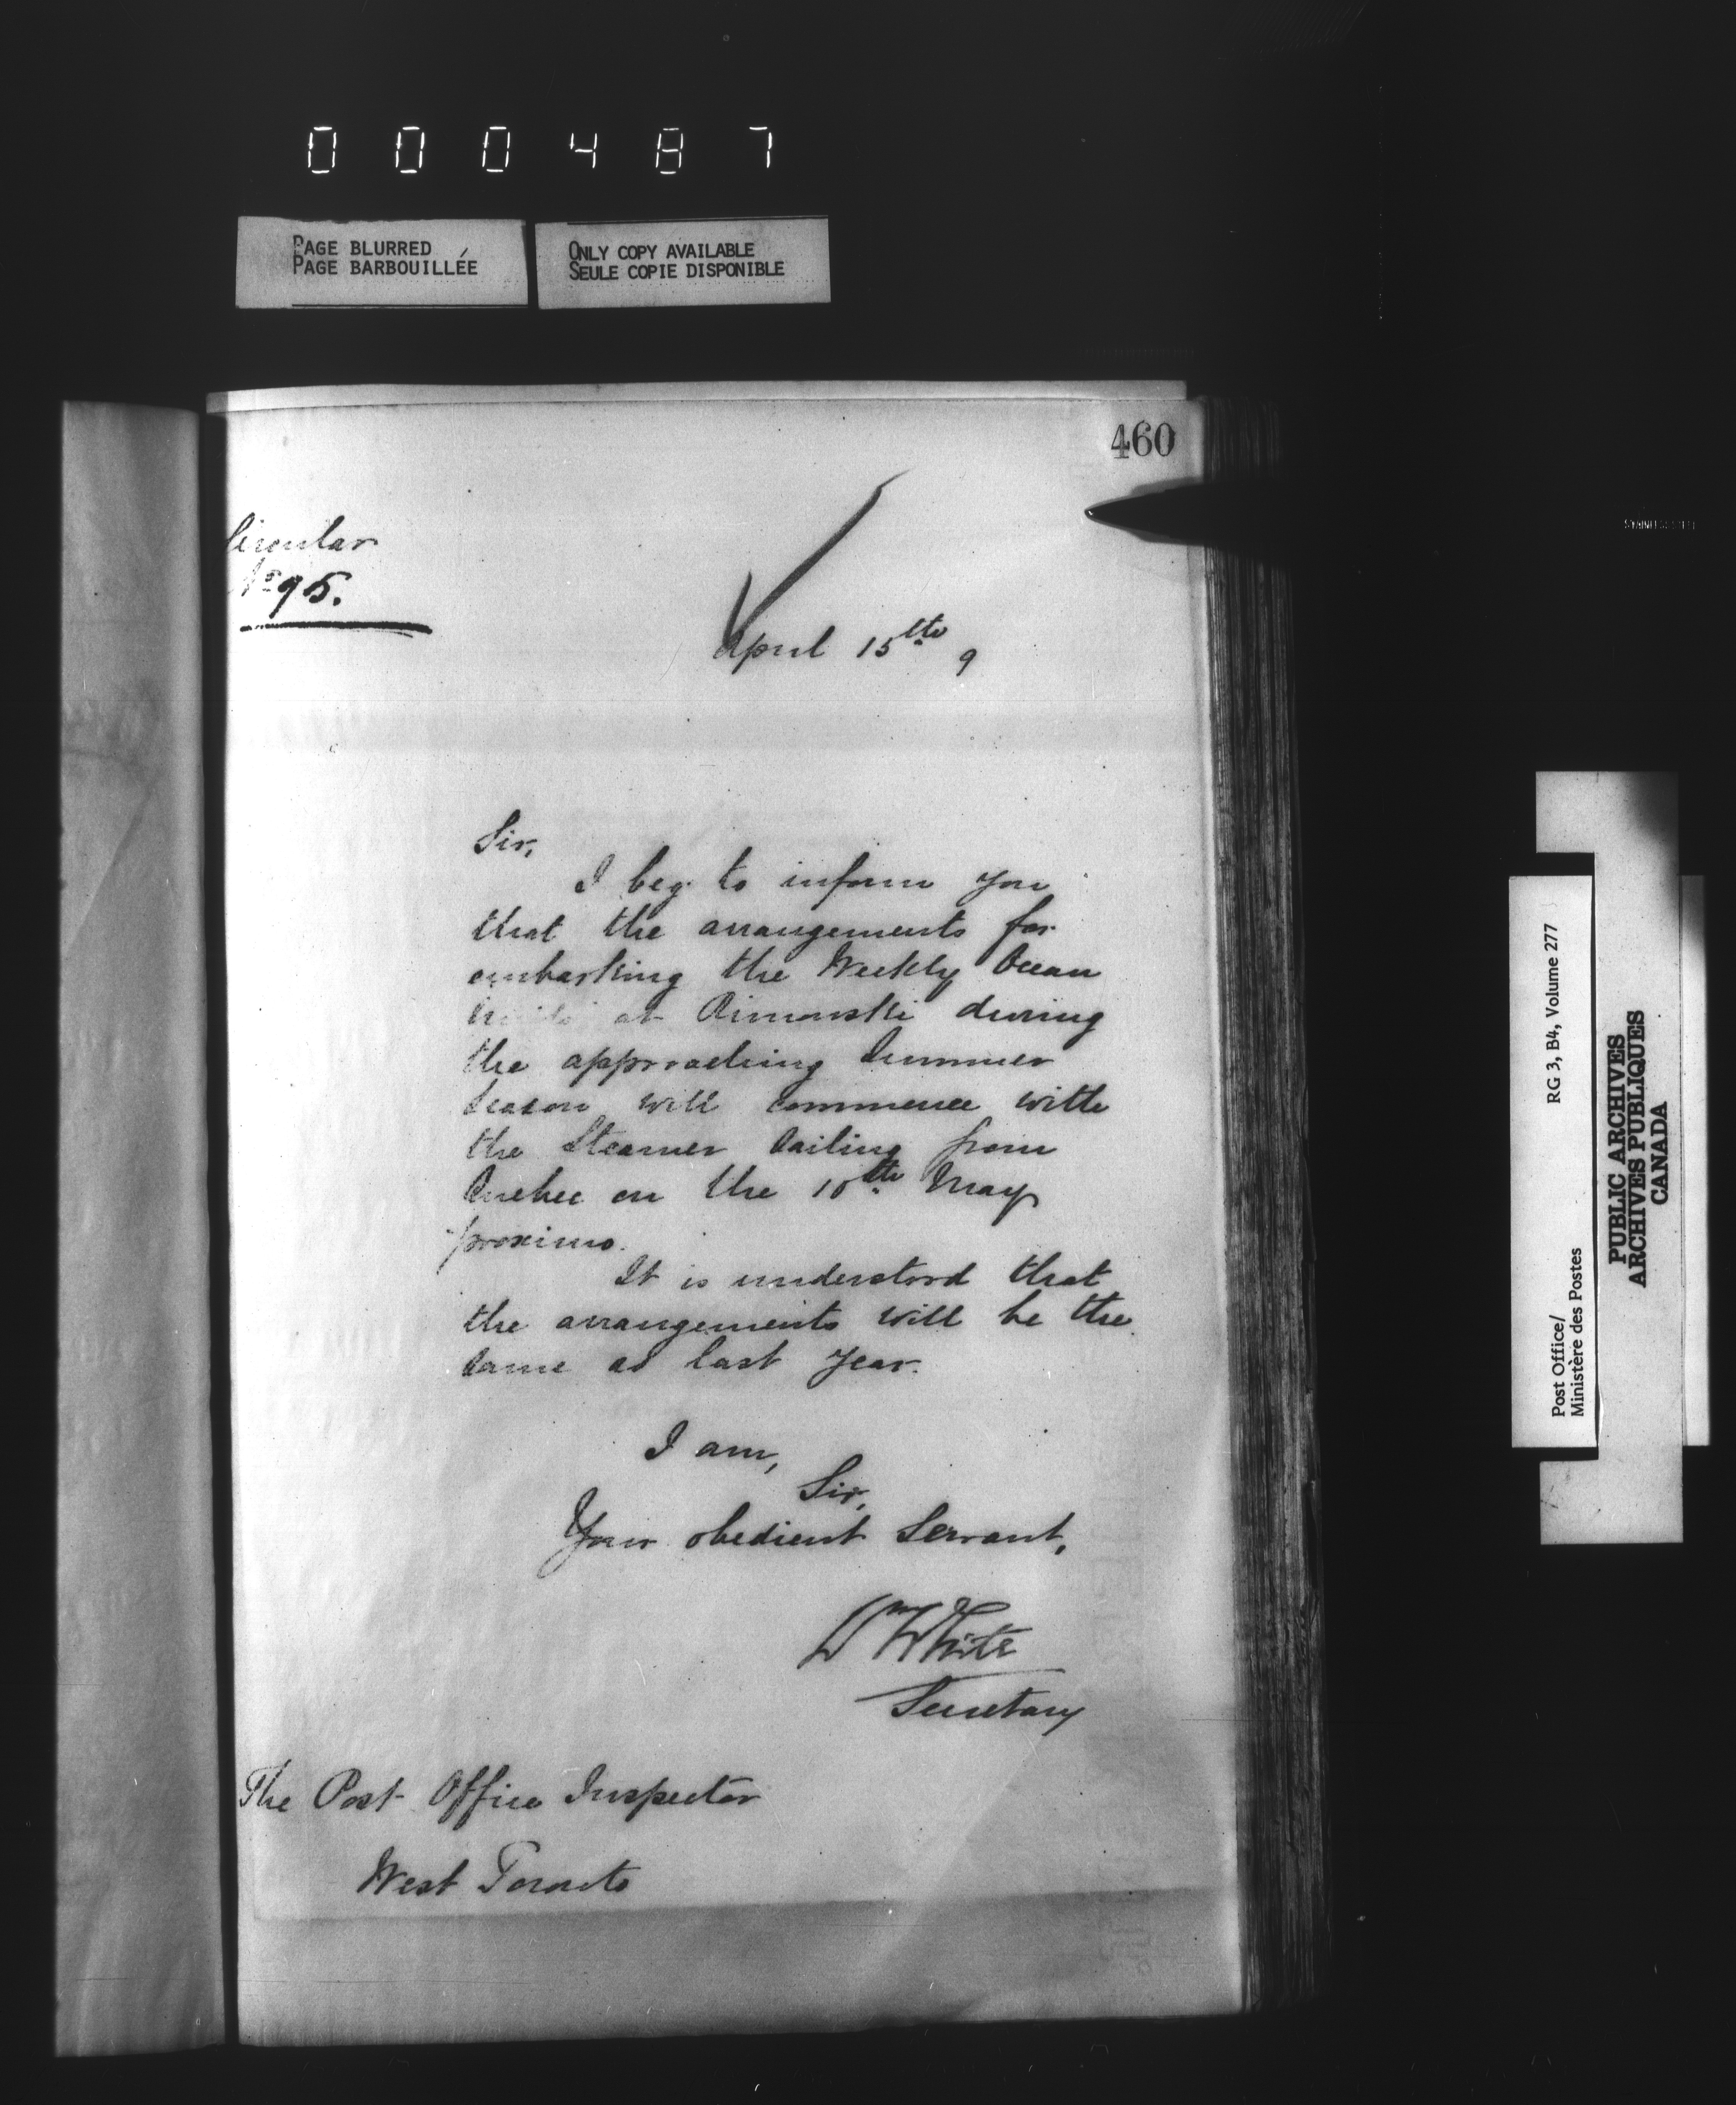 000487
PAGE BLURRED
PAGE BARBOUILLÉE
ONLY COPY AVAILABLE
SEULE COPIE DISPONIBLE
460
Circular
No 95.
April 15th 9
Sir,
I beg to inform you
that the arrangements for
embarking the Weekly Ocean
Mails at Rimouski during
the approaching Summer
Season will commence with
the Steamer Sailing from
Quebec on the 10th May
proximo.
It is understood that
the arrangements will be the
Same as last year.
I am,
Sir,
Your obedient Servant,
Wm White
Secretary
The Post Office Inspector
West Toronto
STAINLESS STEEL
Post Office/
Ministère des Postes
RG 3, B4, Volume 277
PUBLIC ARCHIVES
ARCHIVES PUBLIQUES
CANADA